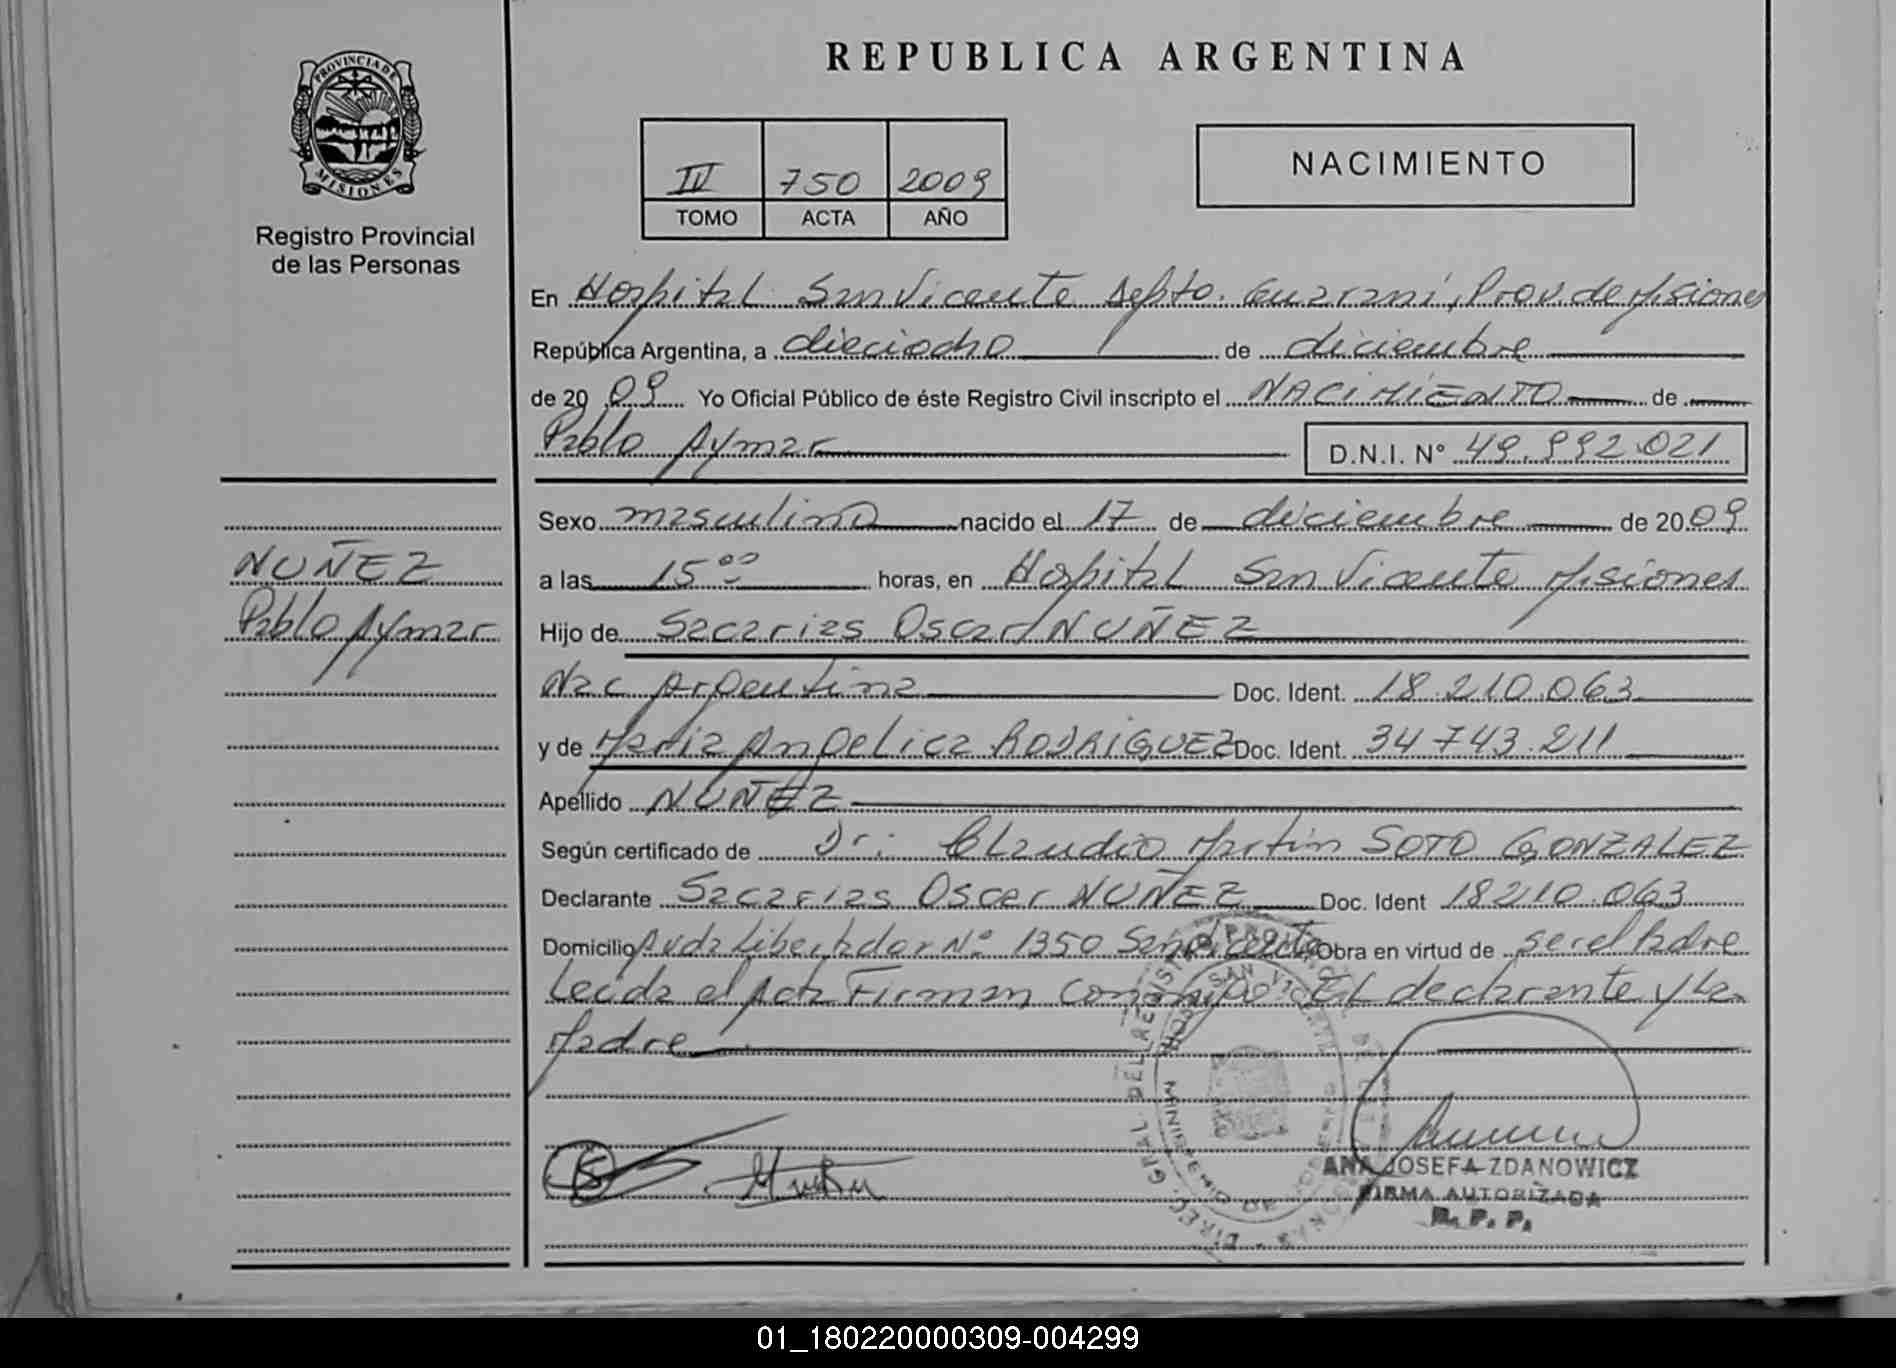 REPUBLICA ARGENTINA
PROVINCIA DE
MISIONES
Registro Provincial
de las Personas
IV 750 2009
TOMO ACTA AÑO
NACIMIENTO
En Hospital San Vicente Depto. Guaraní, Prov. de Misiones
República Argentina, a dieciocho de diciembre
de 20 09 Yo Oficial Público de éste Registro Civil inscripto el NACIMIENTO de
Pablo Aymar D.N.I. N° 49.992.021
Sexo masculino nacido el 17 de diciembre de 20 09
NUÑEZ
Pablo Aymar
a las 15 00 horas, en Hospital San Vicente Misiones
Hijo de Sacarias Oscar NUÑEZ
Nac Argentina Doc. Ident. 18.210.063
y de Maria Angelica RODRIGUEZ Doc. Ident. 34743.211
Apellido NUÑEZ
Según certificado de Dr: Claudio Martin SOTO GONZALEZ
Declarante Sacarias Oscar NUÑEZ Doc. Ident 18210.063
Domicilio Avda Libertador N° 1350 San Vicente Obra en virtud de ser el Padre
Leida el Acta Firman conmigo EL declarante y La
Madre
DIREC. GRAL DEL REGISTRO
HOSP. SAN VICENTE
MINISTERIO DE GOBIERNO
ANA JOSEFA ZDANOWICZ
FIRMA AUTORIZADA
R. P. P.
01_180220000309-004299